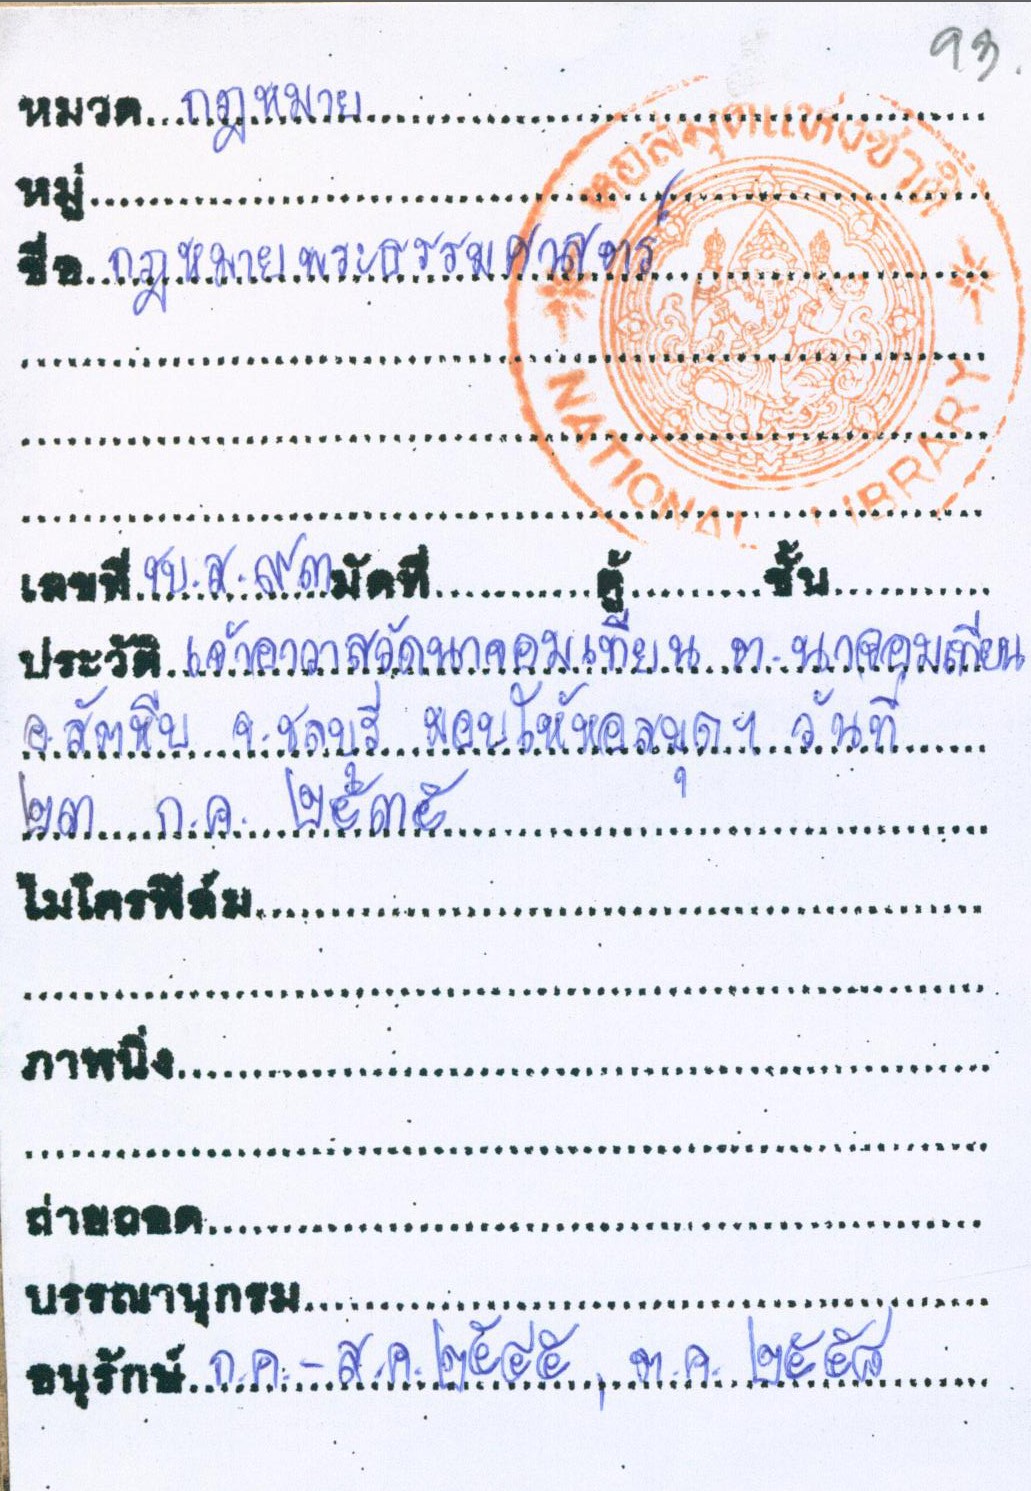 ๑๓.
หมวด กฎหมาย
หมู่
ชื่อ กฎหมายพระธรรมศาสตร์
หอสมุดแห่งชาติ
NATIONAL LIBRARY
เลขที่ ชบ.ส.๙๓ มัดที่ ตู้ ชั้น
ประวัติ เจ้าอาวาสวัดนาจอมเทียน ต.นาจอมเทียน
อ.สัตหีบ จ.ชลบุรี มอบให้หอสมุดฯ วันที่
๒๓ ก.ค. ๒๕๓๕
ไมโครฟิล์ม
ภาพนิ่ง
ถ่ายถอด
บรรณานุกรม
อนุรักษ์ ก.ค.-ส.ค.๒๕๔๕, ต.ค. ๒๕๕๘